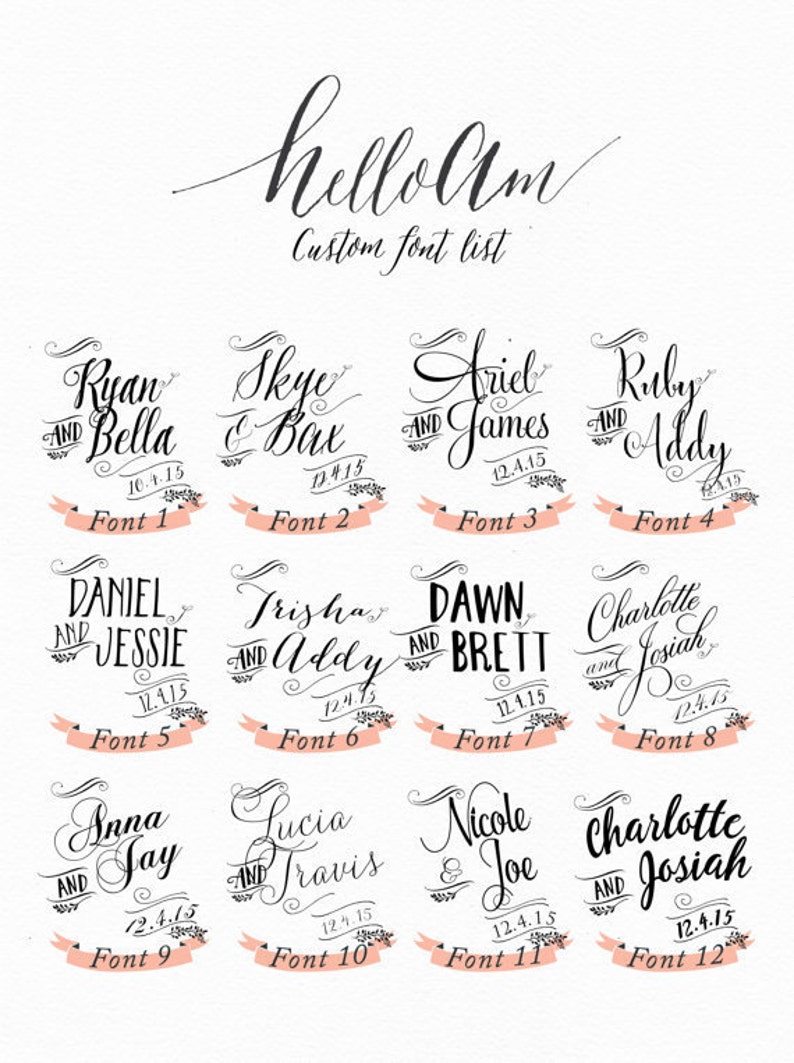 helloAm
Custom font list
Ryan
AND Bella
10.4.15
Font 1
Skye
& Bax
12.4.15
Font 2
Ariel
AND James
12.4.15
Font 3
Ruby
AND Addy
12.4.15
Font 4
DANIEL
AND JESSIE
12.4.15
Font 5
Trisha
AND Addy
12.4.15
Font 6
DAWN
AND BRETT
12.4.15
Font 7
Charlotte
and Josiah
12.4.15
Font 8
Anna
AND Jay
12.4.15
Font 9
Lucia
AND Travis
12.4.15
Font 10
Nicole
& Joe
12.4.15
Font 11
Charlotte
AND Josiah
12.4.15
Font 12